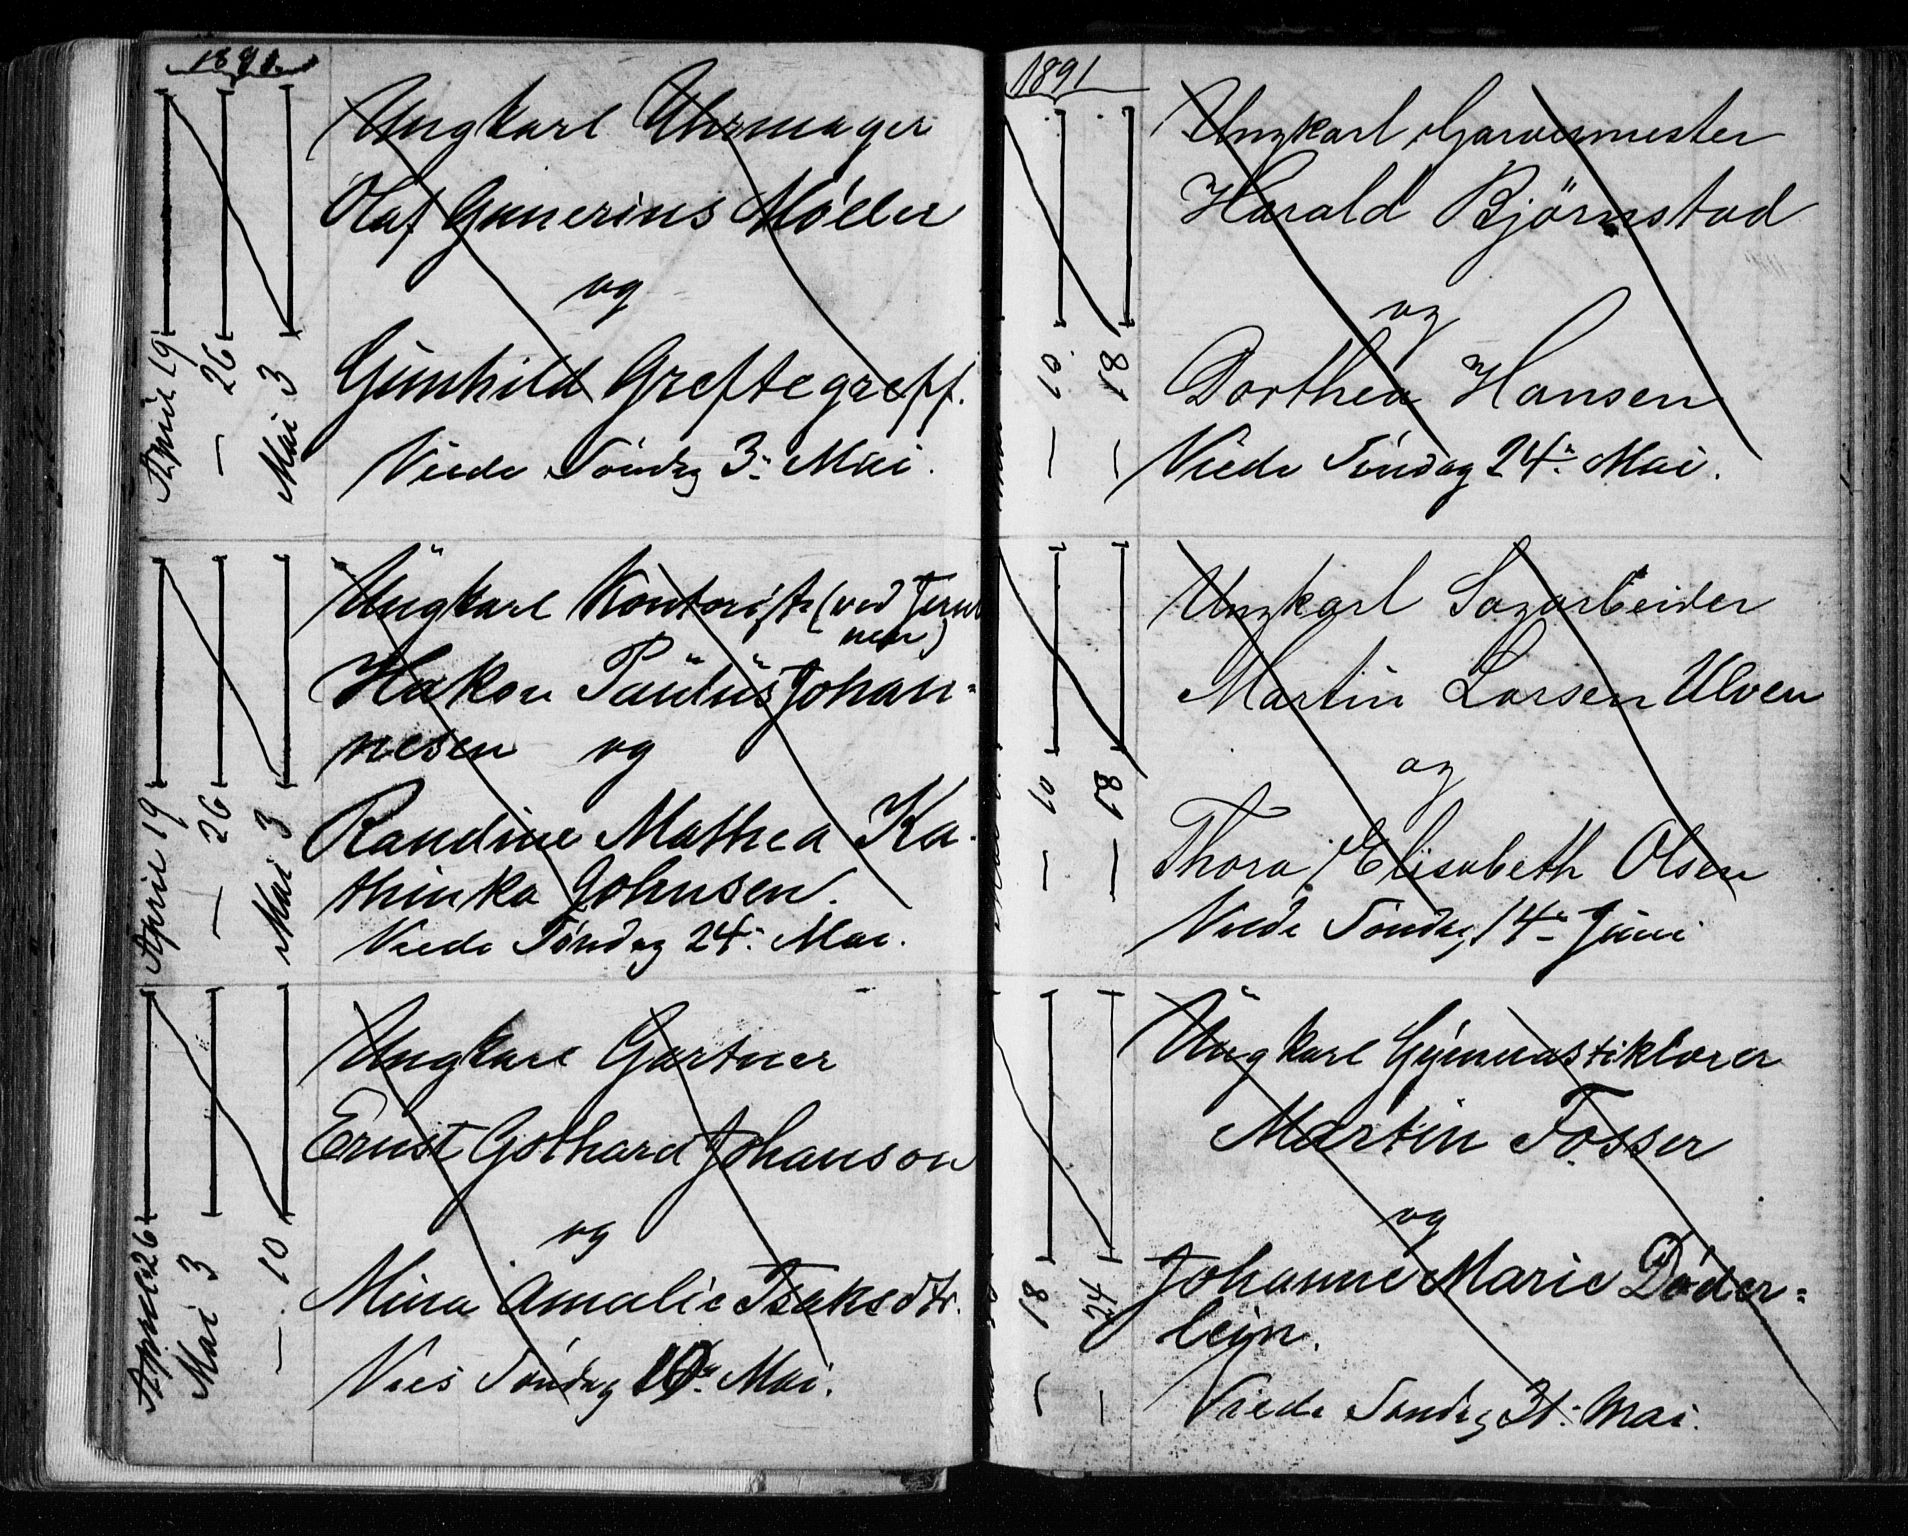 1891.
Ungkarl Uhrmager
Olaf Gunerius Móller
og
Gunhild Greftegreff.
Viede Søndag 3- Mai.
April 19
— 26
Mai 3
Ungkarl Kontorist (ved Jernb
nen)
Hakon Paulus Johan-
nesen og
Randine Mathea Ka-
thinka Johnsen.
Viede Søndag 24- Mai.
April 19
— 26
Mai 3
Ungkarl Gartner
Ernst Gothard Johanson
og
Mina Amalie Isaksdtr.
Vies Søndag 10- Mai.
April 26
Mai 3
— 10
1891
Ungkarl Garvermester
Harald Björnstad
og
Dorthea Hansen
Viede Søndag 24- Mai.
— 10
— 18
Ungkarl Sagarbeider
Martin Larsen Ulven
og
Thora Elisabeth Olsen
Viede Søndag 14- Juni
— 10
— 18
Ungkarl Gymnastiklærer
Martin Fosser
og
Johanne Marie Döder-
lein.
Viede Søndag 31- Mai.
— 18
— 24